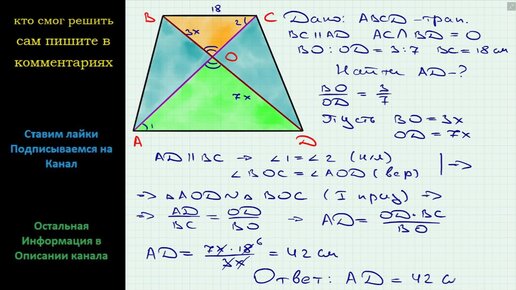 кто смог решить
сам пишите в
комментариях
Ставим лайки
Подписываемся на
Канал
Остальная
Информация в
Описании канала
18
B
C
2
3x
O
7x
1
A
D
Дано: ABCD - трап.
BC || AD AC ∩ BD = O
BO : OD = 3:7 BC = 18 см
Найти AD - ?
BO/OD = 3/7
Пусть BO = 3x
OD = 7x
AD || BC → ∠1 = ∠2 (н/л)
∠BOC = ∠AOD (вер) | →
→ △AOD ~ △BOC (I призн) →
→ AD/BC = OD/BO → AD = OD·BC/BO
AD = 7x·18 6/3x = 42 см
Ответ: AD = 42 с